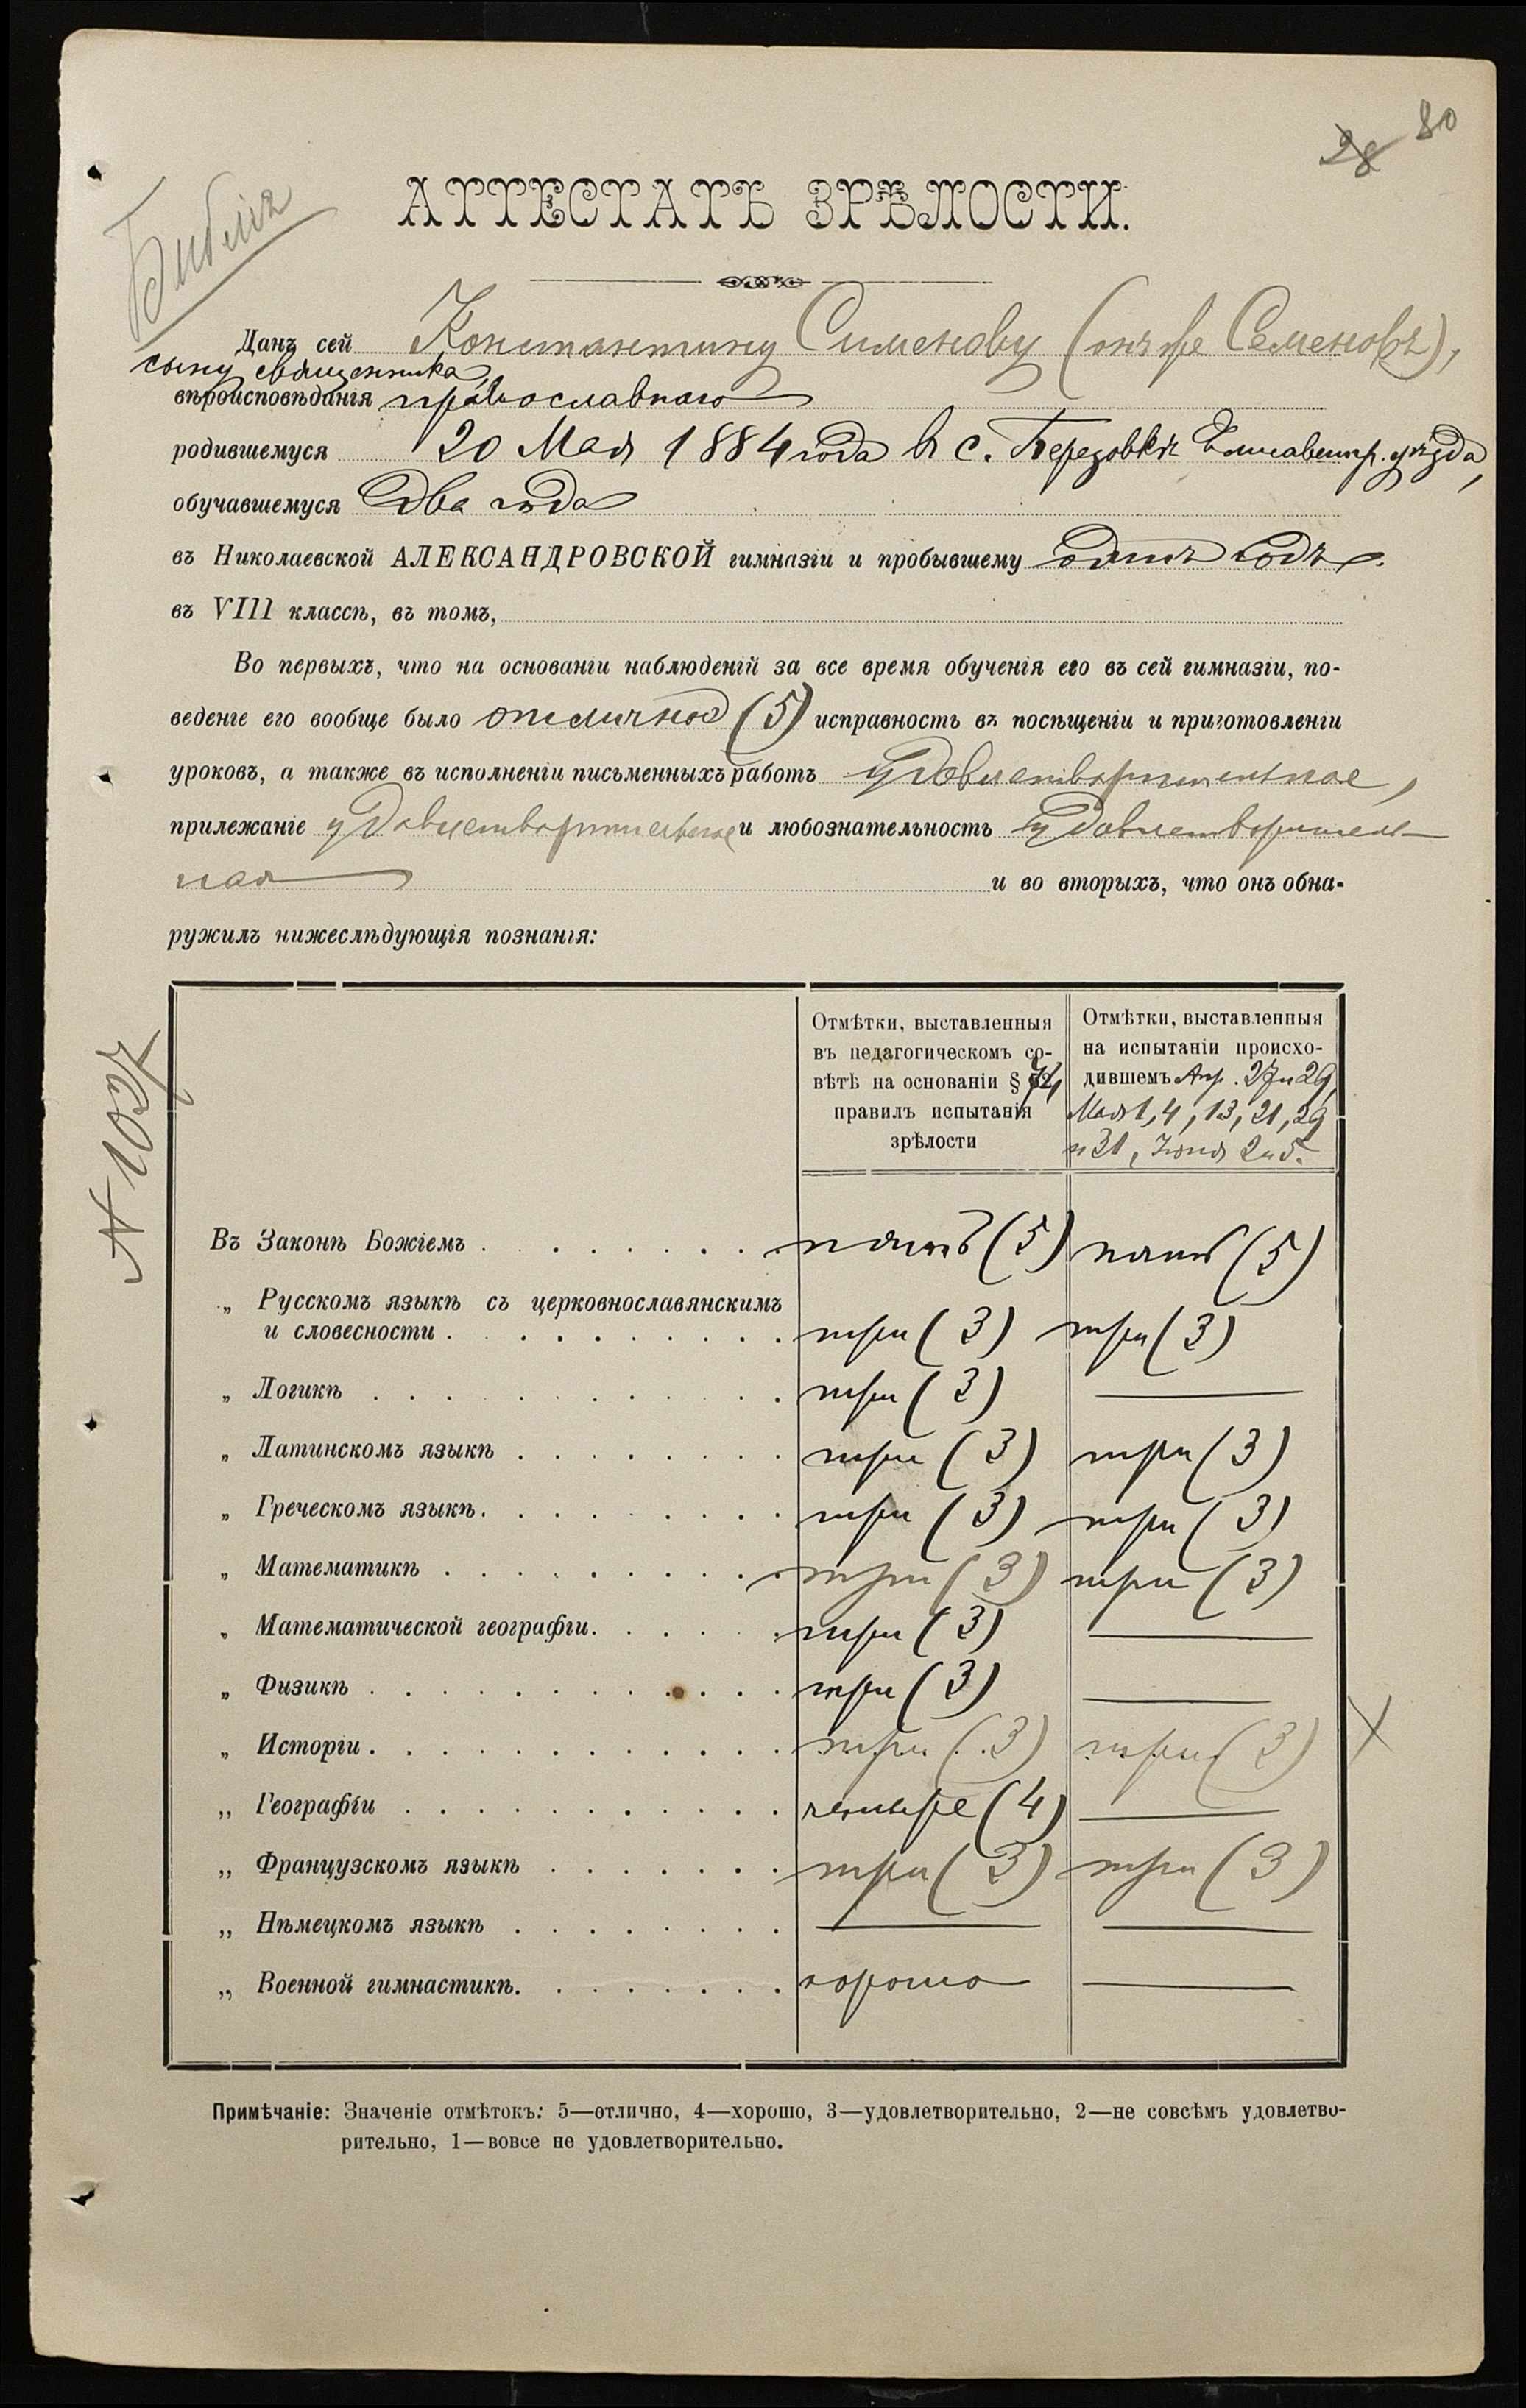 28 80
Библія
АТТЕСТАТЪ ЗРѢЛОСТИ.
Данъ сей Константину Сименову (онъ же Семеновъ),
сыну священника,
вѣроисповѣданія православнаго
родившемуся 20 Мая 1884 года въ с. Березовкѣ Елисаветгр. уѣзда,
обучавшемуся два года
въ Николаевской АЛЕКСАНДРОВСКОЙ гимназіи и пробывшему одинъ годъ
въ VIII классѣ, въ томъ,
Во первыхъ, что на основаніи наблюденій за все время обученія его въ сей гимназіи, по-
веденіе его вообще было отличное (5) исправность въ посѣщеніи и приготовленіи
уроковъ, а также въ исполненіи письменныхъ работъ удовлетворительная,
прилежаніе удовлетворительное и любознательность удовлетворитель-
ная и во вторыхъ, что онъ обна-
ружилъ нижеслѣдующія познанія:
№ 1037
Отмѣтки, выставленныя
въ педагогическомъ со-
вѣтѣ на основаніи § 74
правилъ испытанія
зрѣлости
Отмѣтки, выставленныя
на испытаніи происхо-
дившемъ Апр. 27 и 29,
Мая 1, 4, 13, 21, 29
и 31, Іюня 2 и 5.
Въ Законѣ Божіемъ . . . . . . . . пять (5) пять (5)
„ Русскомъ языкѣ съ церковнославянскимъ
и словесности . . . . . . . . . . три (3) три (3)
„ Логикѣ . . . . . . . . . . . три (3) —
„ Латинскомъ языкѣ . . . . . . . . три (3) три (3)
„ Греческомъ языкѣ. . . . . . . . . три (3) три (3)
„ Математикѣ . . . . . . . . . . три (3) три (3)
„ Математической географіи. . . . . . три (3) —
„ Физикѣ . . . . . . . . . . . . три (3) —
„ Исторіи. . . . . . . . . . . . три (3) три (3) X
„ Географіи . . . . . . . . . . . четыре (4) —
„ Французскомъ языкѣ . . . . . . . три (3) три (3)
„ Нѣмецкомъ языкѣ . . . . . . . . — —
„ Военной гимнастикѣ. . . . . . . . хорошо —
Примѣчаніе: Значеніе отмѣтокъ: 5—отлично, 4—хорошо, 3—удовлетворительно, 2—не совсѣмъ удовлетво-
рительно, 1—вовсе не удовлетворительно.